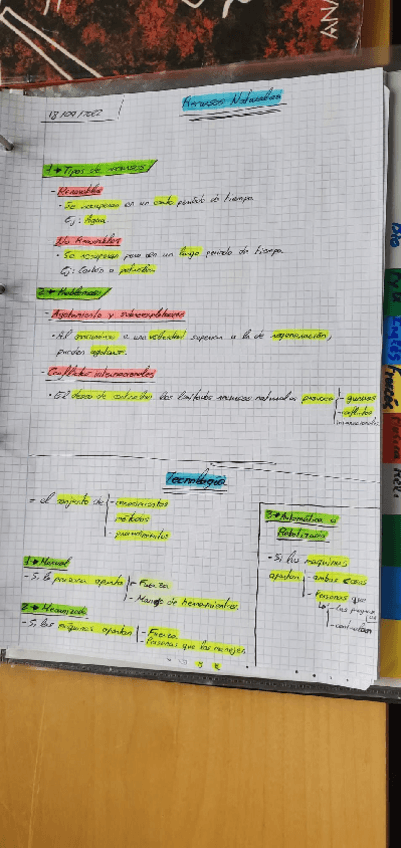 Recursos Naturales
1→ Tipos de recursos
- Renovables
• Se recuperan en un corto periodo de tiempo
Ej: Agua
No Renovables
• Se recuperan pero en un largo periodo de tiempo
Ej: Carbón o petróleo
2→ Problemas
- Agotamiento y sobreexplotación
• Al consumirse a una velocidad superior a la de regeneración,
pueden agotarse.
- Conflictos internacionales
• El deseo de controlar los limitados recursos naturales provoca - guerras
- conflictos
internacionales
Tecnología
= el conjunto de - conocimientos
- métodos
- procedimientos
1→ Manual
- Si la persona aporta - Fuerza
- Manejo de herramientas.
2→ Mecanizada
- Si las máquinas aportan - Fuerza
- Personas que las manejen
3→ Automática o
Robotizada
- Si las máquinas
aportan - ambas cosas
- Personas que
las
- controlan
Bio
Inglés
Francés
Música